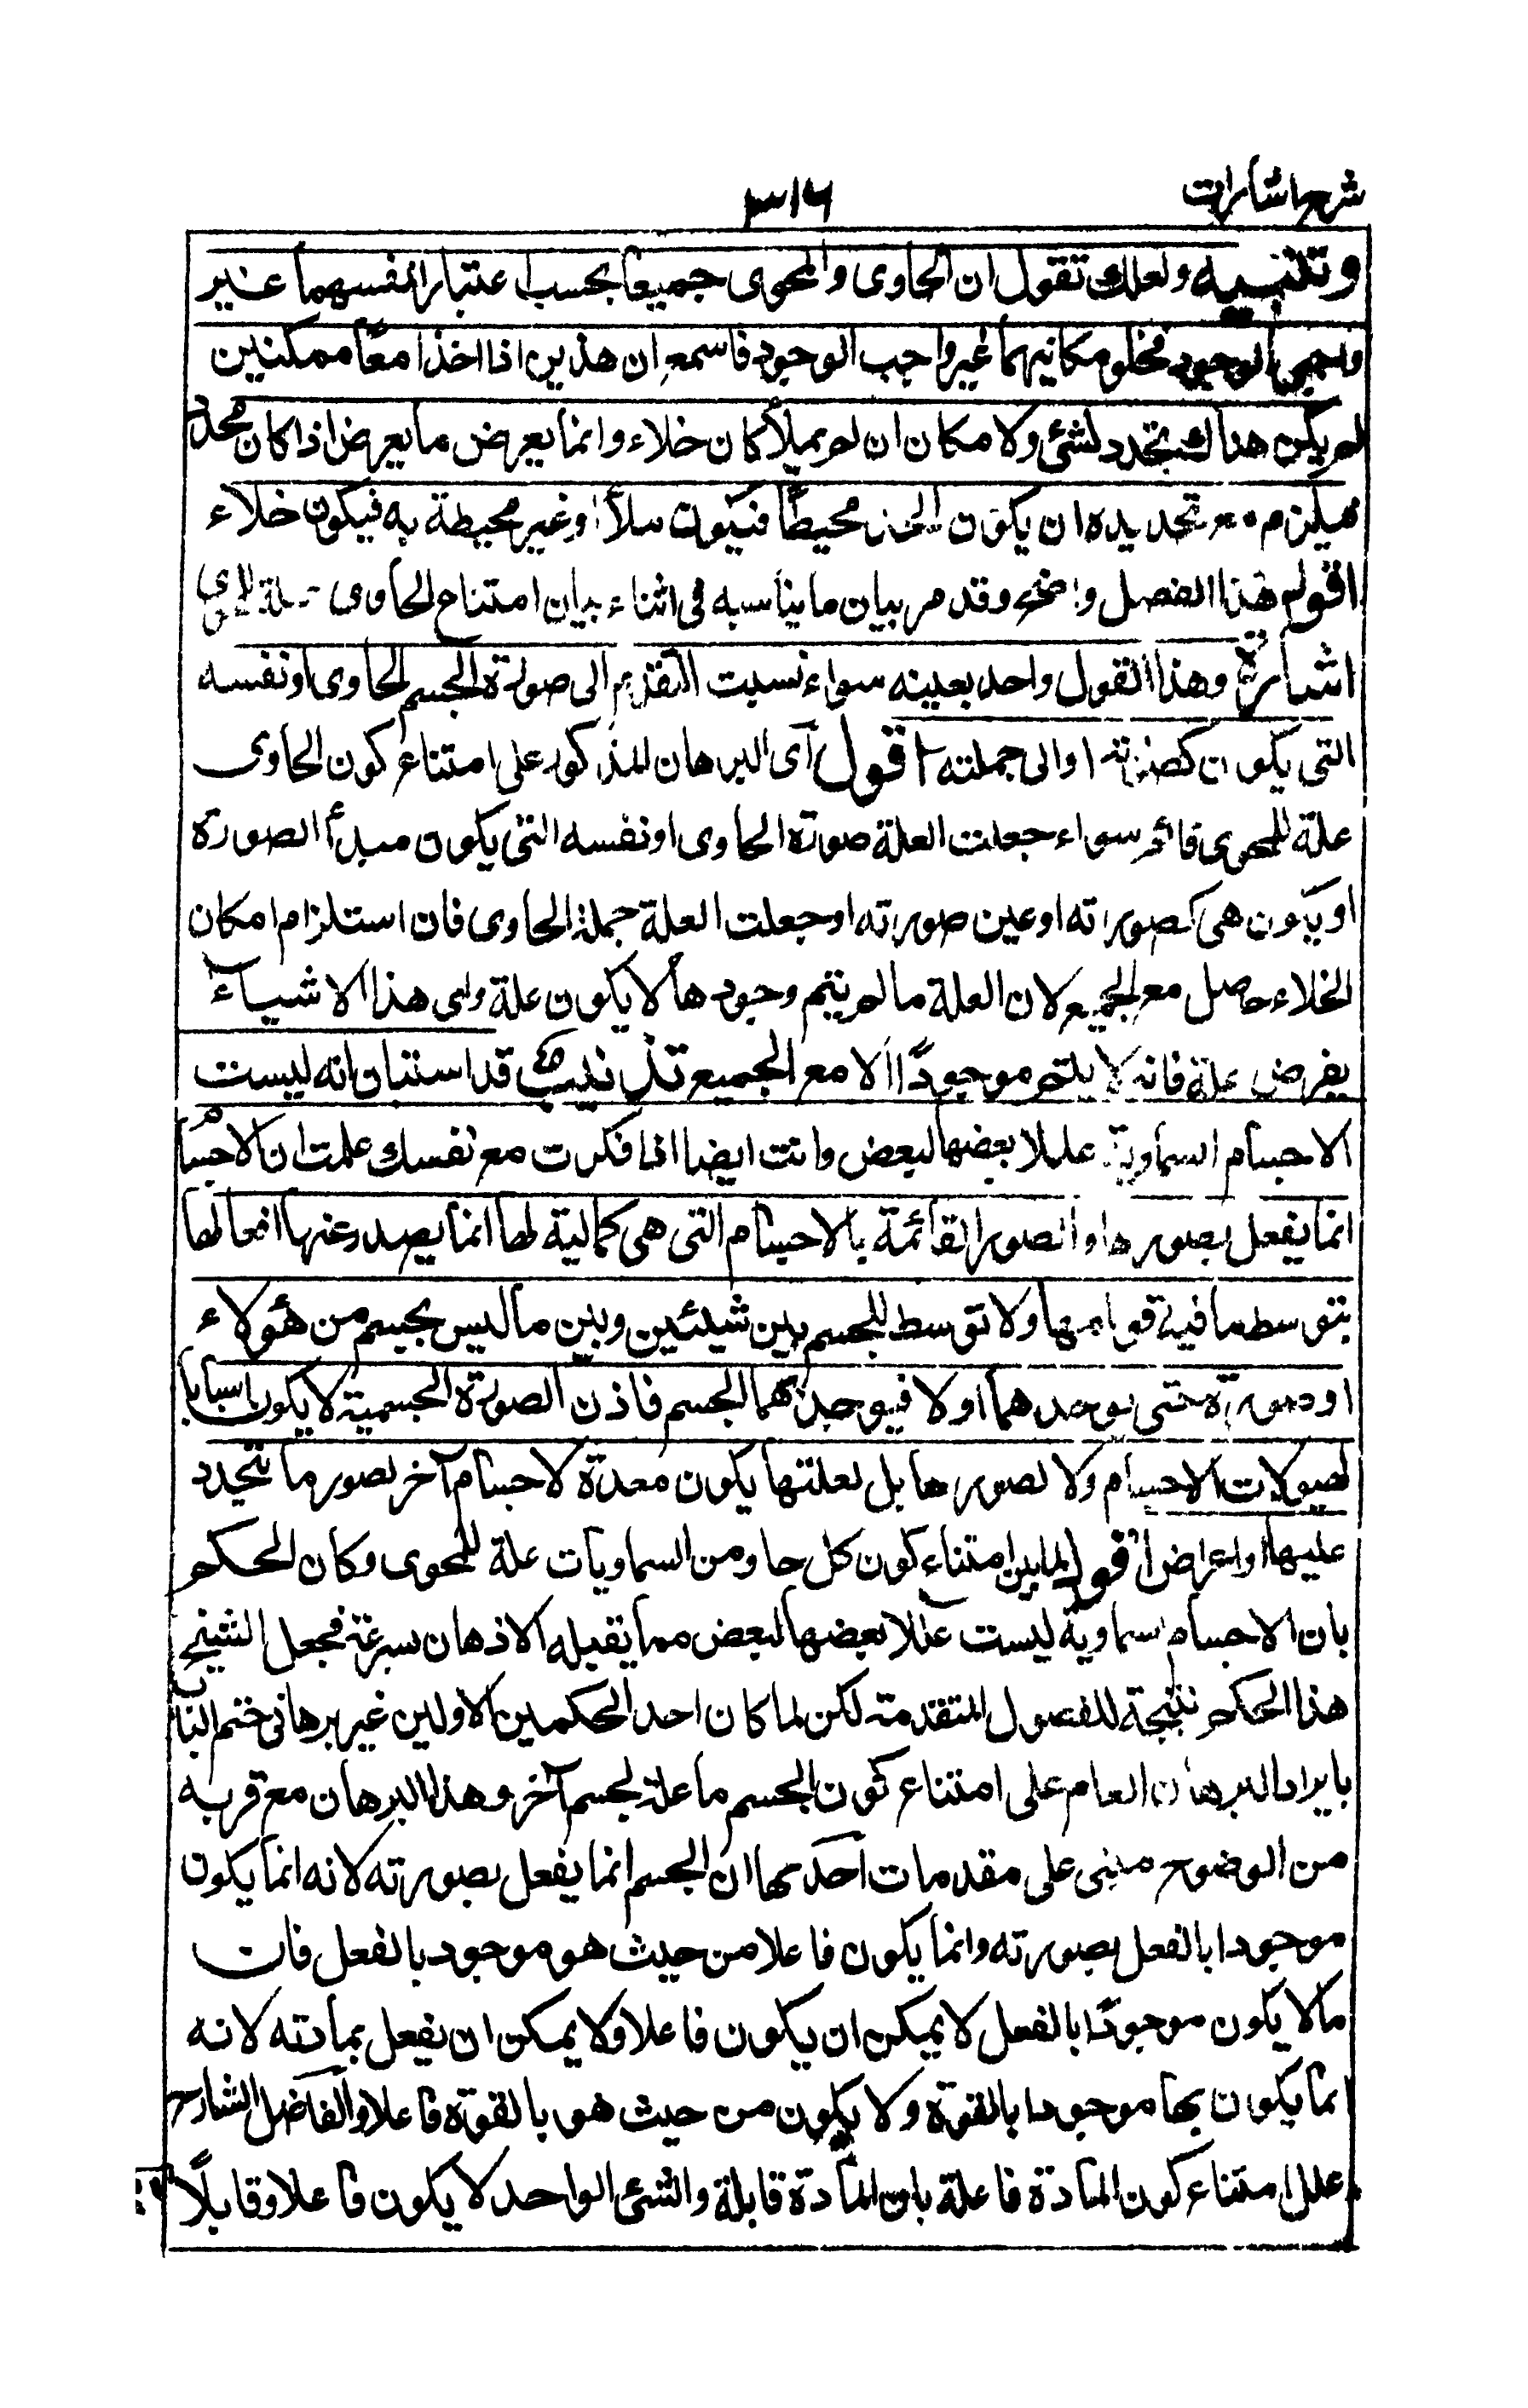 شرح اشارات
٣١٦
و تنبيه ولعلك تقول ان الحاوى والمحوى جميعا بحسب اعتبار انفسهما غير
واجبى الوجود فخلو مكانيهما غير واجب الوجود فاسمع ان هذين اذا اخذا معًا ممكنين
لم يكن هناك تحدد لشئ ولا مكان ان لم يملأ كان خلاء وانما يعرض ما يعرض اذا كان محدد
فيلزم مع تحديده ان يكون الحد محيطًا فيكون ملأ او غير محيطة به فيكون خلاء
اقول هذا الفصل واضح وقد مر بيان ما يناسبه فى اثناء بيان امتناع الحاوى علة للمحوى
اشارة وهذا القول واحد بعينه سواء نسبت التقدم الى صورة الجسم الحاوى او نفسه
التى يكون كصورته او الى جملته اقول اى البرهان المذكور على امتناع كون الحاوى
علة للمحوى قائم سواء جعلت العلة صورة الحاوى او نفسه التى يكون مبدأ الصورة
او يكون هى كصورته او عين صورته او جعلت العلة جملة الحاوى فان استلزام امكان
الخلاء حاصل مع الجميع لان العلة ما لم يتم وجودها لا يكون علة واى هذا الاشياء
يفرض علة فانه لا يلتم موجودًا الا مع الجميع تذنيب قد استبان انه ليست
الاجسام السماوية عللا بعضها لبعض وانت ايضا اذا فكرت مع نفسك علمت ان الاجسام
انما يفعل بصورها والصور القائمة بالاجسام التى هى كمالية لها انما يصدر عنها افعالها
بتوسط ما فيه قوامها ولا توسط للجسم بين شيئين وبين ما ليس بجسم من هؤلاء
او صورة حتى يوجدهما اولا فيوجد بهما الجسم فاذن الصورة الجسمية لا يكون اسبابا
لهيولات الاجسام ولا لصورها بل لعلتها يكون معدة لاجسام آخر بصور ما تتجدد
عليها او اعراض اقول لما بين امتناع كون كل حاو من السماويات علة للمحوى وكان الحكم
بان الاجسام السماوية ليست عللا بعضها لبعض مما يقبله الاذهان بسرعة فجعل الشيخ
هذا الحكم نتيجة للفصول المتقدمة لكن لما كان احد الحكمين الاولين غير برهانى ختم الباب
بايراد البرهان العام على امتناع كون الجسم ما علة لجسم آخر وهذا البرهان مع قربه
من الوضوح مبنى على مقدمات احدىها ان الجسم انما يفعل بصورته لانه انما يكون
موجودا بالفعل بصورته وانما يكون فاعلا من حيث هو موجود بالفعل فان
ما لا يكون موجودًا بالفعل لا يمكن ان يكون فاعلا ولا يمكن ان يفعل بمادته لانه
انما يكون بها موجودا بالقوة ولا يكون من حيث هو بالقوة فاعلا والفاضل الشارح
علل امتناع كون المادة فاعلة بان المادة قابلة والشئ الواحد لا يكون فاعلا وقابلًا